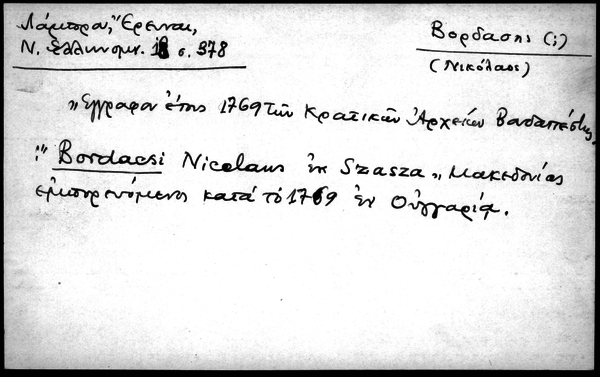 Λάμπρου, "Ερευναι,
Ν. Ελληνομν. 18 σ. 378
Βορδασης (;)
(Νικόλαος)
"Έγγραφον έτους 1769 των Κρατικών Αρχείων Βουδαπέστης.
:" Bordacsi Nicolaus ἐκ Szasza „ Μακεδονίας
εμπορευόμενος κατά το 1769 ἐν Οὐγγαρία.